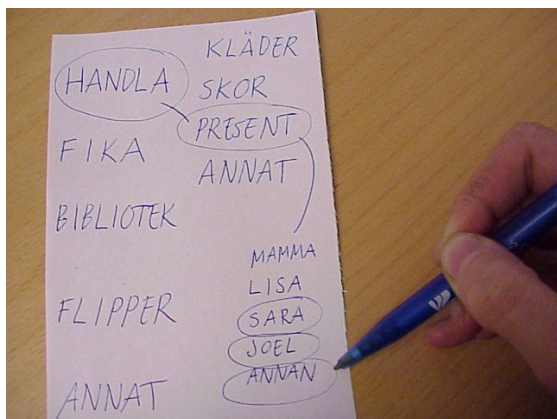 HANDLA
FIKA
BIBLIOTEK
FLIPPER
ANNAT
KLÄDER
SKOR
PRESENT
ANNAT
MAMMA
LISA
SARA
JOEL
ANNAN